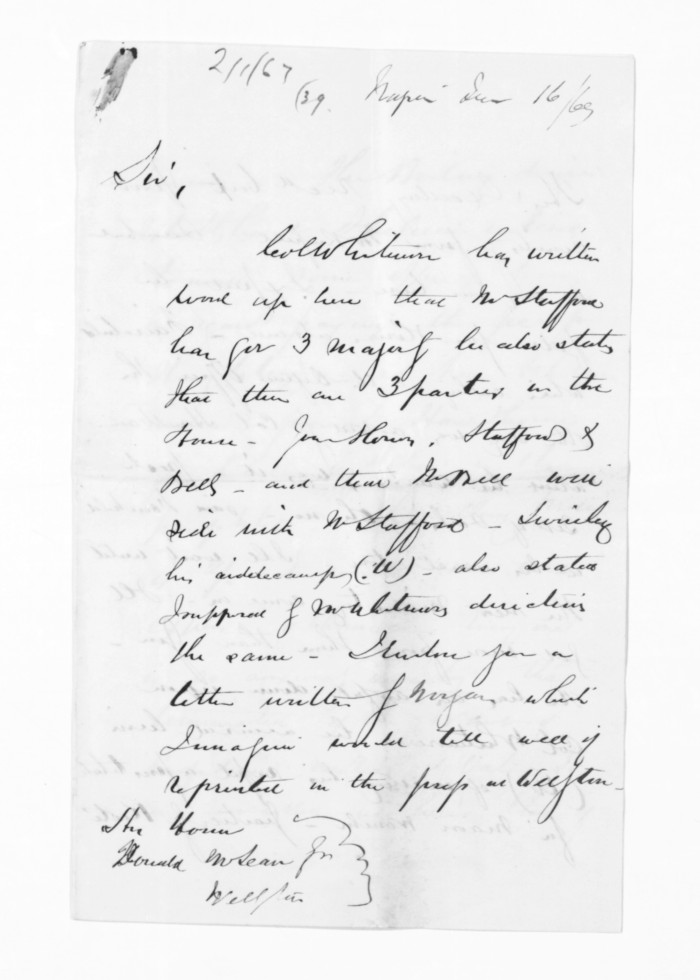 2/1/67
(39. Napier June 16/69
Sir,
Col Whitmore has written
word up here that Mr Stafford
has got 3 majority he also states
that there are 3 parties in the
House - Your Honor, Stafford &
Bell - and that Mr Bell will
side with Mr Stafford -
his aidedecamp (W) - also stated
I suppose Mr Whitmore's
the same - I enclose you a
letter written by Morgan which
I imagine would tell well if
reprinted in the press at Wellgton -
His Honor
Donald McLean Esq
Wellgton